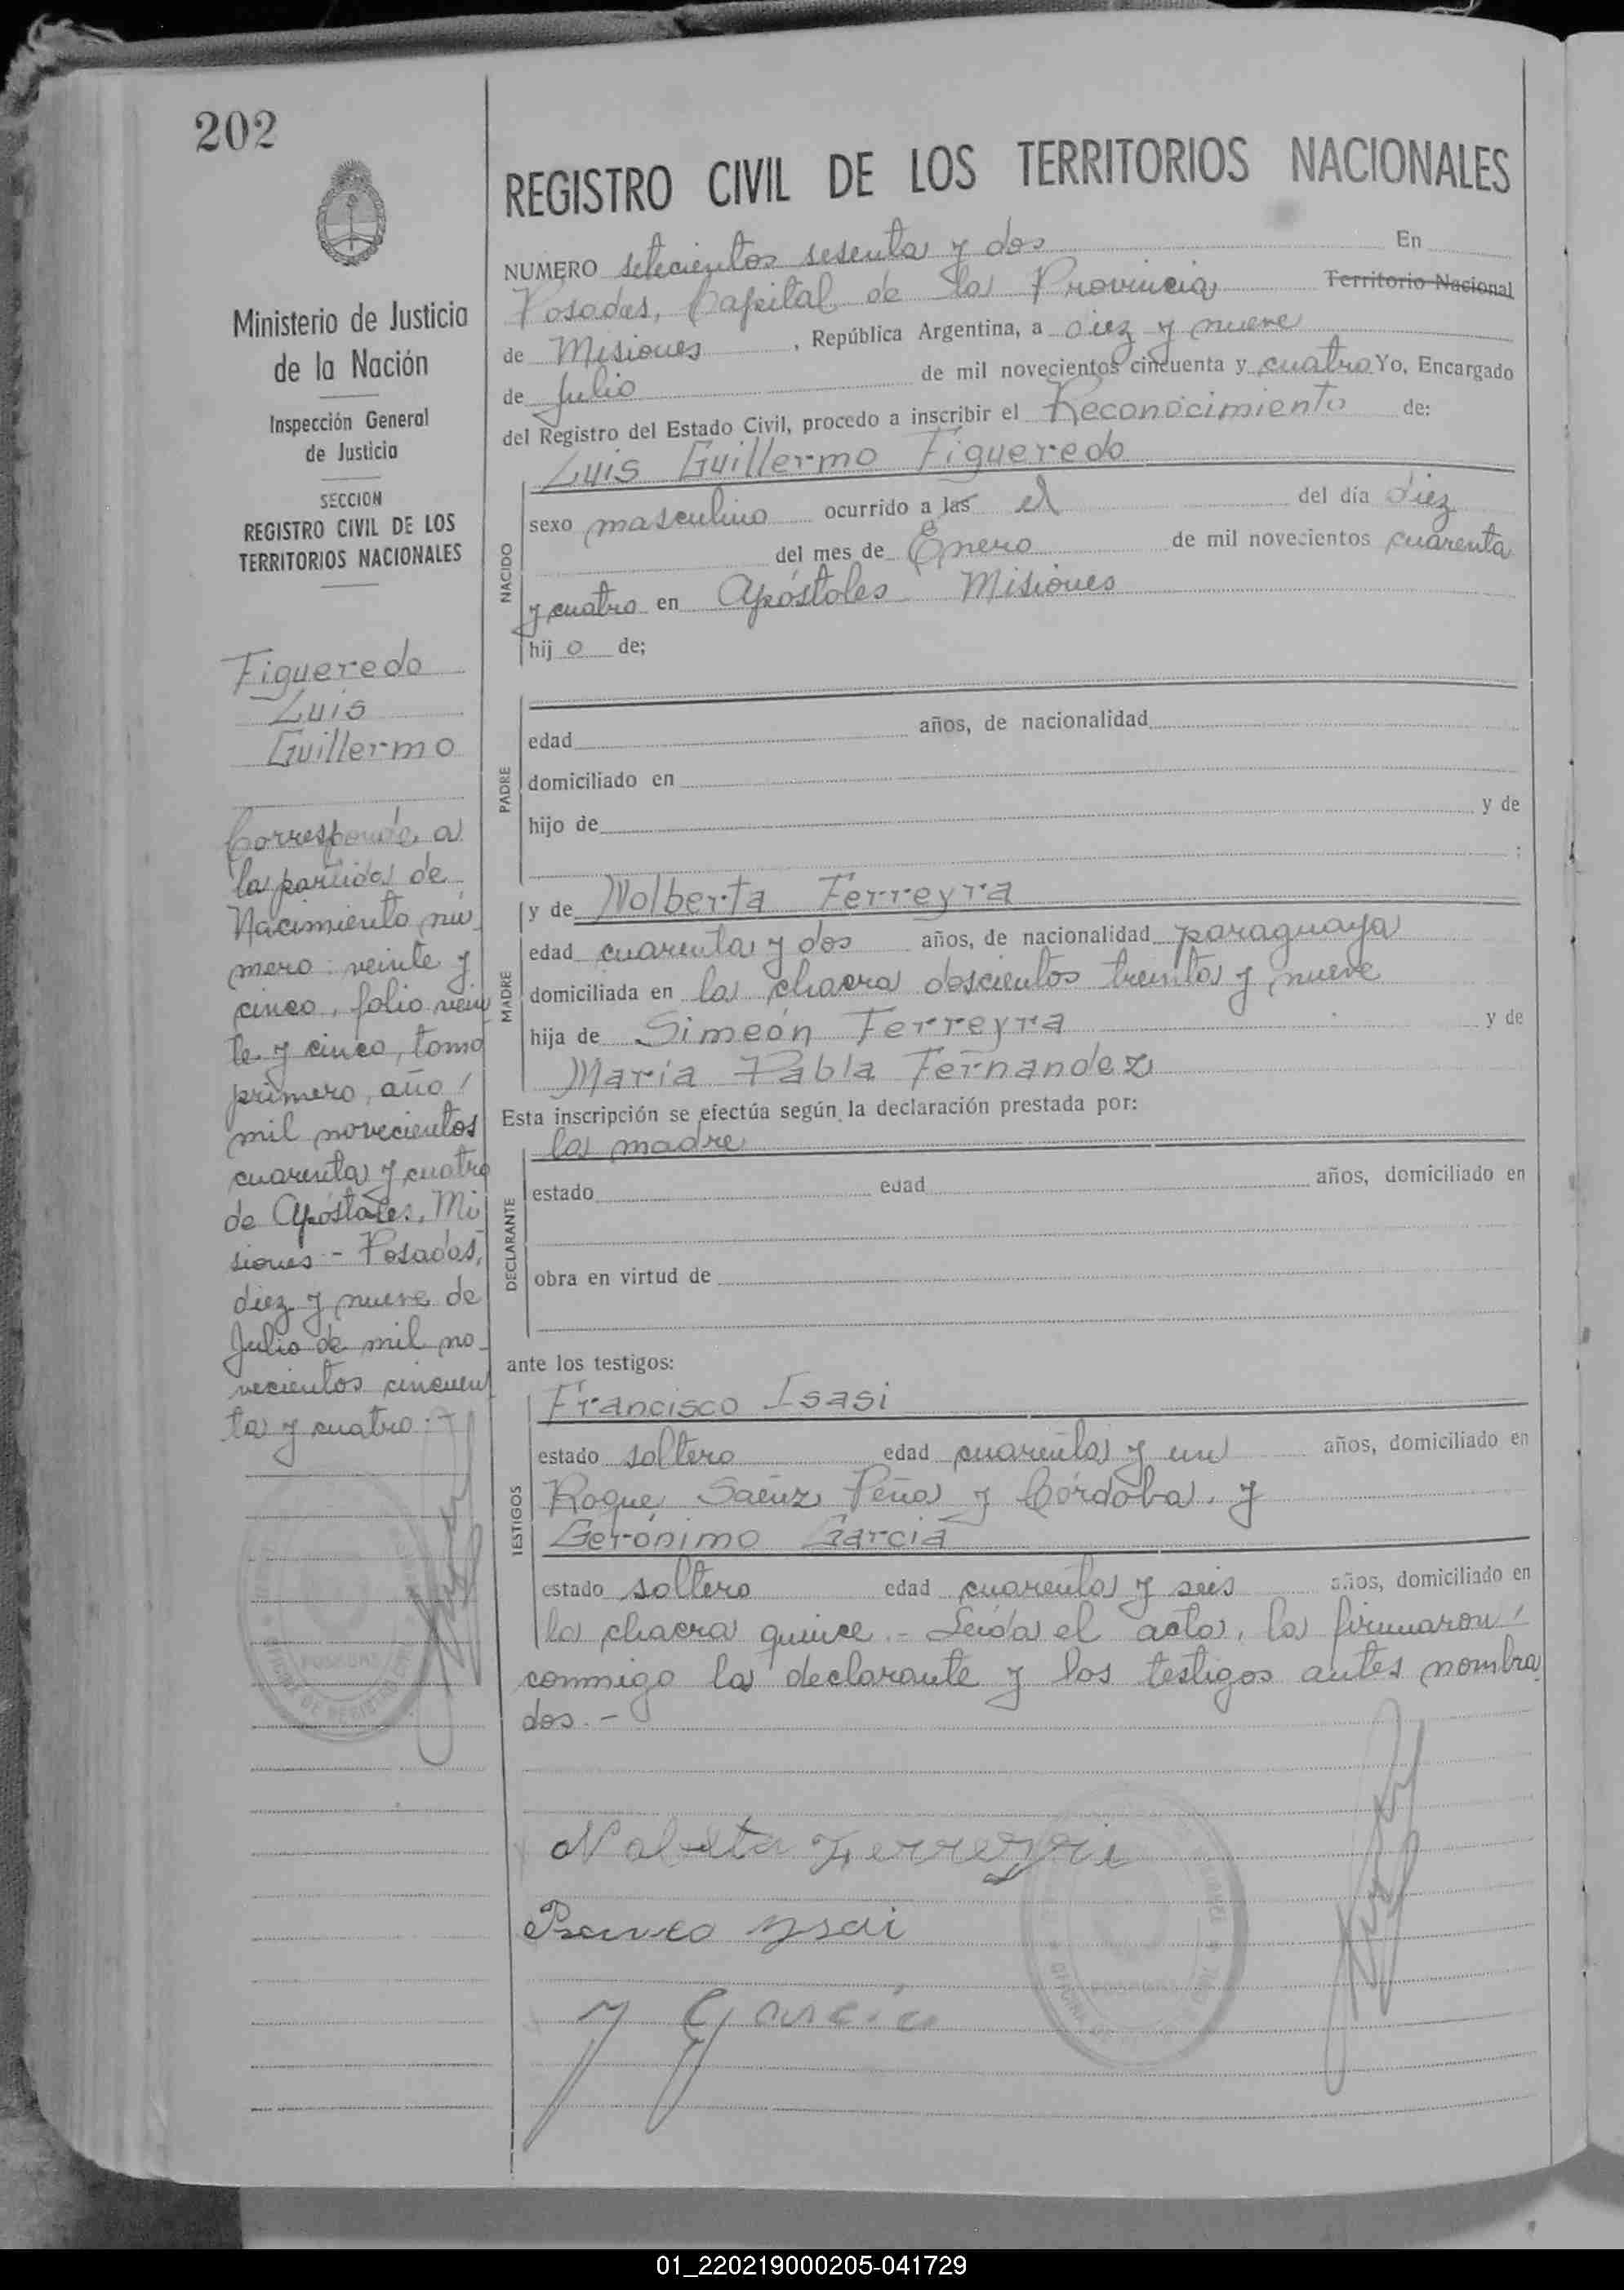 202
Ministerio de Justicia
de la Nación
Inspección General
de Justicia
SECCION
REGISTRO CIVIL DE LOS
TERRITORIOS NACIONALES
Figueredo
Luis
Guillermo
Corresponde a
la partida de
Nacimiento nú
mero: veinte y
cinco, folio vein
te y cinco, tomo
primero, año
mil novecientos
cuarenta y cuatro
de Apóstoles, Mi
siones - Posadas,
diez y nueve de
Julio de mil no
vecientos cincuen
ta y cuatro.-
REGISTRO CIVIL DE LOS TERRITORIOS NACIONALES
NUMERO setecientos sesenta y dos En
Posadas, Capital de la Provincia Territorio Nacional
de Misiones, República Argentina, a diez y nueve
de Julio de mil novecientos cincuenta y cuatro Yo, Encargado
del Registro del Estado Civil, procedo a inscribir el Reconocimiento de:
Luis Guillermo Figueredo
NACIDO
sexo masculino ocurrido a las el del día diez
del mes de Enero de mil novecientos cuarenta
y cuatro en Apóstoles Misiones
hijo de;
PADRE
edad años, de nacionalidad
domiciliado en
hijo de y de
;
MADRE
y de Nolberta Ferreyra
edad cuarenta y dos años, de nacionalidad paraguaya
domiciliada en la chacra doscientos treinta y nueve
hija de Simeón Ferreyra y de
María Pabla Fernandez
Esta inscripción se efectúa según la declaración prestada por:
la madre
DECLARANTE
estado edad años, domiciliado en
obra en virtud de
ante los testigos:
TESTIGOS
Francisco Isasi
estado soltero edad cuarenta y un años, domiciliado en
Roque Saenz Peña y Córdoba, y
Gerónimo Garcia
estado soltero edad cuarenta y seis años, domiciliado en
la chacra quince.- Leída el acta, la firmaron
conmigo la declarante y los testigos antes nombra
dos.-
Ferreyra
Garcia
POSADAS
01_220219000205-041729